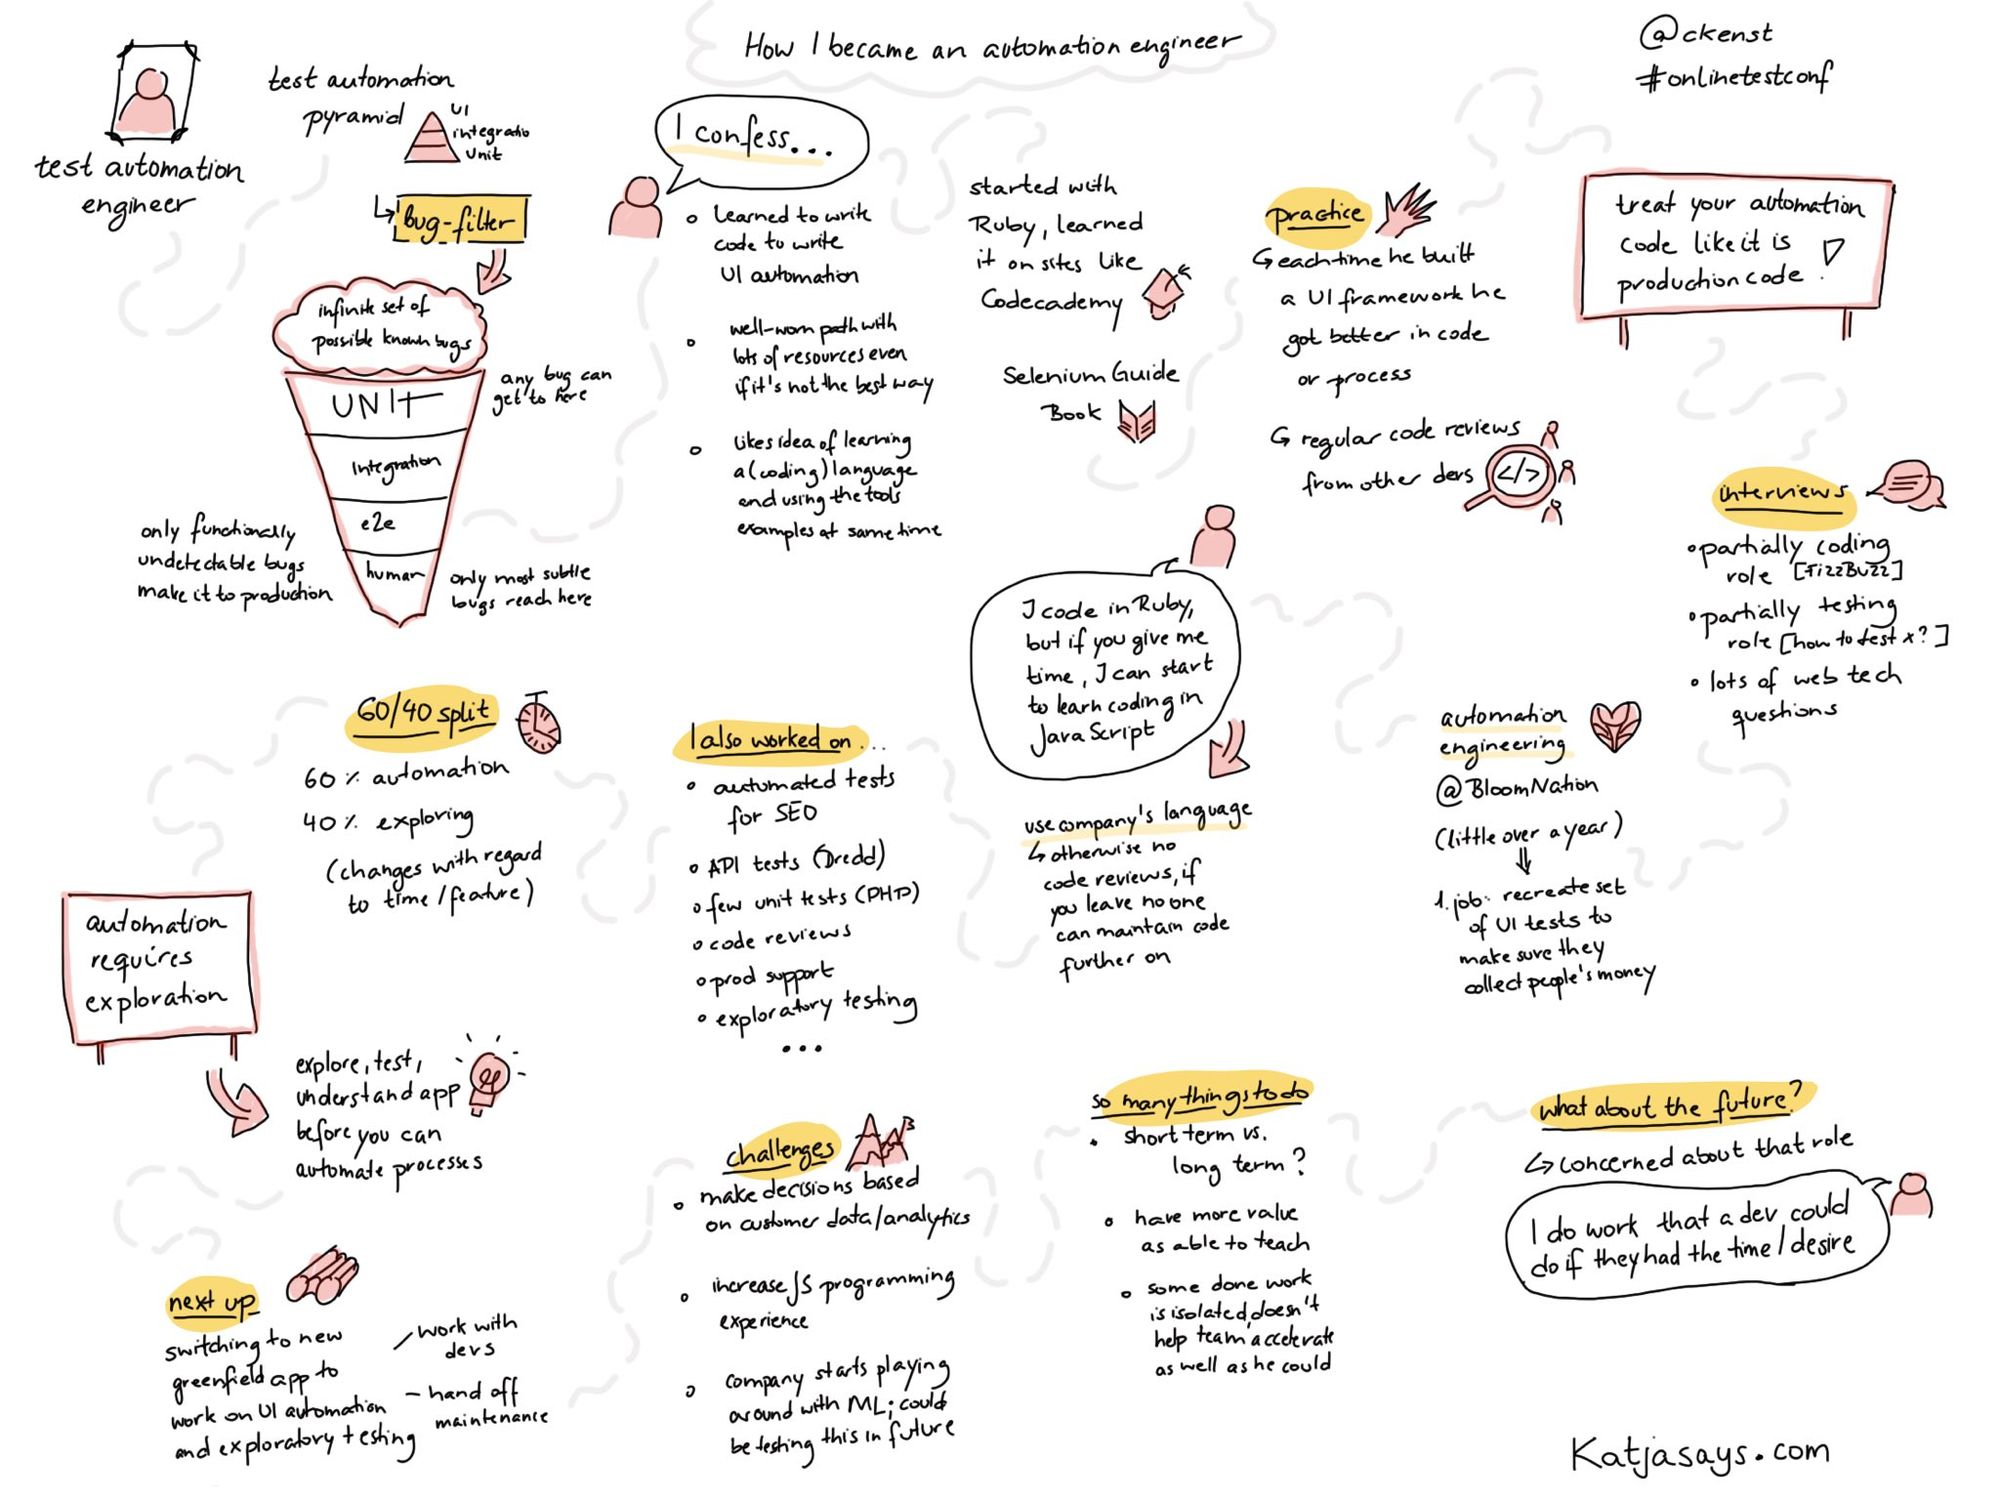 How I became an automation engineer
@ckenst
#onlinetestconf
test automation
engineer
test automation
pyramid
UI
integratio
Unit
bug-filter
infinite set of
possible known bugs
UNIT
Integration
e2e
human
any bug can
get to here
only functionally
undetectable bugs
make it to production
only most subtle
bugs reach here
I confess...
learned to write
code to write
UI automation
well-worn path with
lots of resources even
if it's not the best way
likes idea of learning
a (coding) language
and using the tools
examples at same time
started with
Ruby, learned
it on sites like
Codecademy
Selenium Guide
Book
practice
each time he built
a UI framework he
got better in code
or process
regular code reviews
from other devs
</>
treat your automation
code like it is
production code!
interviews
partially coding
role [FizzBuzz]
partially testing
role [how to test x?]
lots of web tech
questions
automation
engineering
@BloomNation
(little over a year)
1. job: recreate set
of UI tests to
make sure they
collect people's money
I code in Ruby,
but if you give me
time, I can start
to learn coding in
JavaScript
use company's language
otherwise no
code reviews, if
you leave no one
can maintain code
further on
I also worked on...
automated tests
for SEO
API tests (Dredd)
few unit tests (PHP)
code reviews
prod support
exploratory testing
...
60/40 split
60% automation
40% exploring
(changes with regard
to time/feature)
automation
requires
exploration
explore, test,
understand app
before you can
automate processes
next up
switching to new
greenfield app to
work on UI automation
and exploratory testing
work with
devs
- hand off
maintenance
challenges
make decisions based
on customer data/analytics
increase JS programming
experience
company starts playing
around with ML; could
be testing this in future
so many things to do
short term vs.
long term?
have more value
as able to teach
some done work
is isolated, doesn't
help team accelerate
as well as he could
what about the future?
concerned about that role
I do work that a dev could
do if they had the time/desire
Katjasays.com